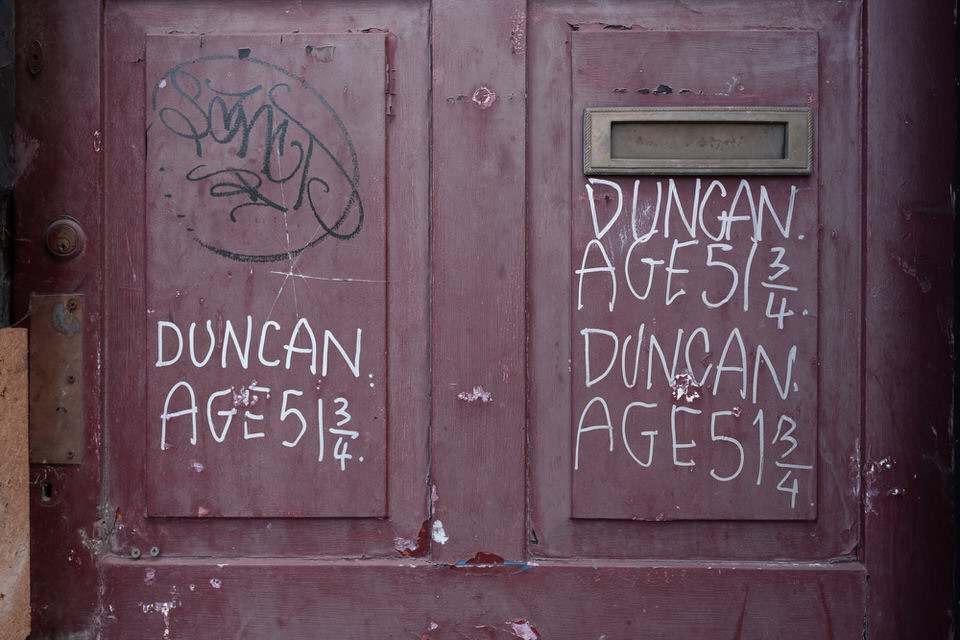 DUNCAN.
AGE 51 3/4.
DUNCAN.
AGE 51 3/4.
DUNCAN.
AGE 51 3/4